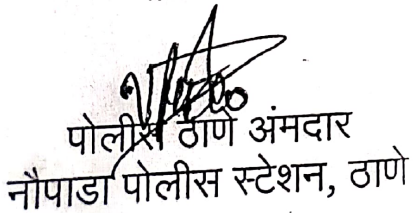 पोलीस ठाणे अंमदार
नौपाडा पोलीस स्टेशन, ठाणे